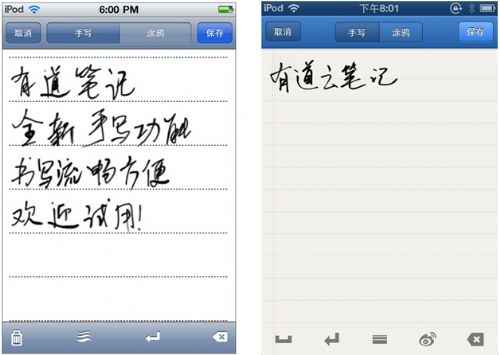 iPod 6:00 PM
取消 手写 涂鸦 保存
有道笔记
全新手写功能
书写流畅方便
欢迎试用!
iPod 下午8:01
取消 手写 涂鸦 保存
有道云笔记